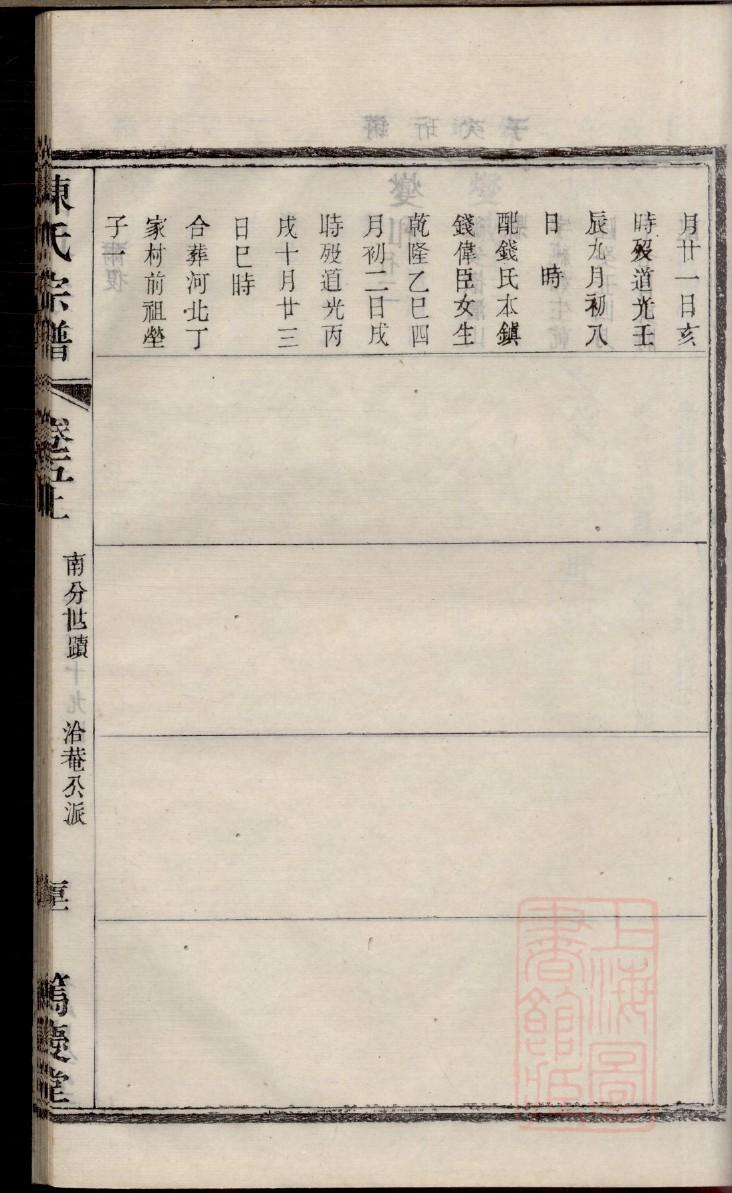 月廿一日亥
時歿道光壬
辰九月初八
日　時
配錢氏本鎮
錢偉臣女生
乾隆乙巳四
月初二日戌
時歿道光丙
戌十月廿三
日巳時
合葬河北丁
家村前祖塋
子一
陳氏宗譜
卷五上
南分世蹟
洽菴公派
篤慶堂
上海圖書館藏